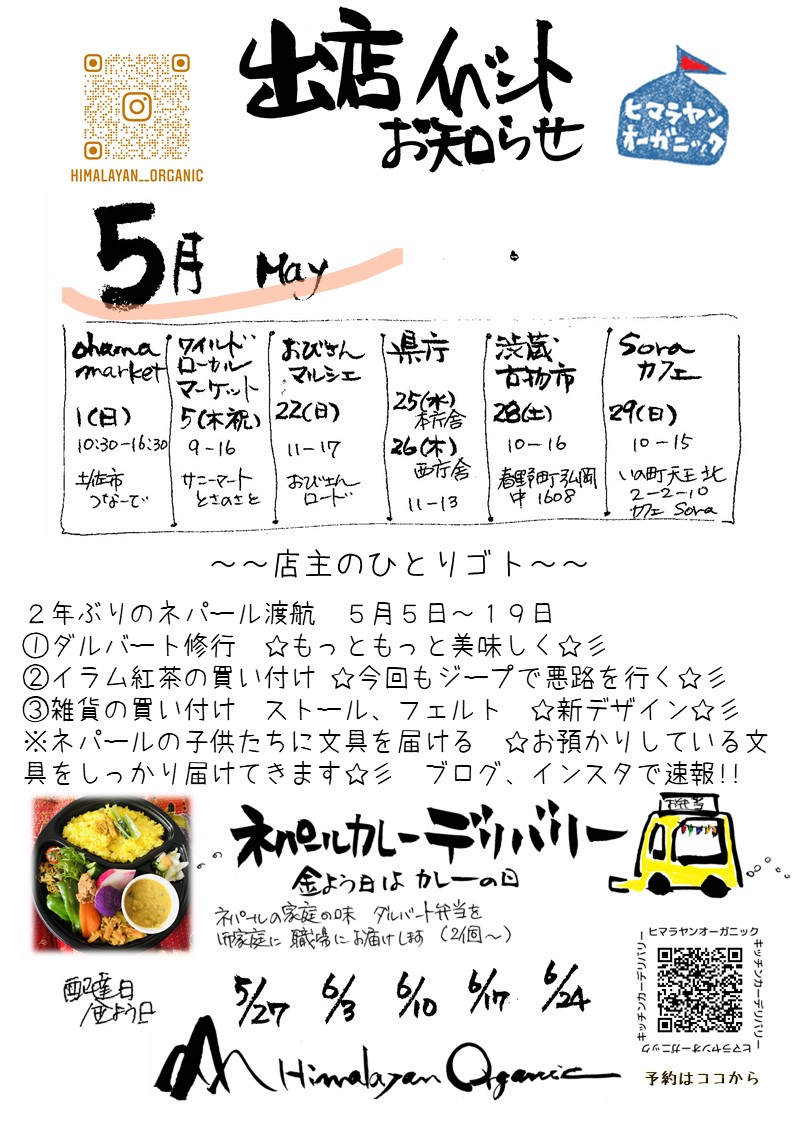 出店イベント
お知らせ
HIMALAYAN__ORGANIC
ヒマラヤン
オーガニック
5月 May
ohama market
1(日)
10:30-16:30
土佐市
つなーで
ワイルド
ローカル
マーケット
5(木祝)
9-16
サニーマート
とさのさと
おびさん
マルシェ
22(日)
11-17
おびさん
ロード
県庁
25(水)
本庁舎
26(木)
西庁舎
11-13
渋蔵
古物市
28(土)
10-16
春野町弘岡
中1608
Sora
カフェ
29(日)
10-15
いの町天王北
2-2-10
カフェ Sora
～～店主のひとりゴト～～
２年ぶりのネパール渡航　５月５日～１９日
①ダルバート修行　☆もっともっと美味しく☆彡
②イラム紅茶の買い付け ☆今回もジープで悪路を行く☆彡
③雑貨の買い付け　ストール、フェルト　☆新デザイン☆彡
※ネパールの子供たちに文具を届ける　☆お預かりしている文
具をしっかり届けてきます☆彡　ブログ、インスタで速報!!
お弁当
ネパールカレーデリバリー
金よう日は カレーの日
ネパールの家庭の味 ダルバート弁当を
ご家庭に 職場にお届けします (2個～)
配達日
/金よう日
5/27 6/3 6/10 6/17 6/24
ヒマラヤンオーガニック
キッチンカーデリバリー
ヒマラヤンオーガニック
キッチンカーデリバリー
予約はココから
Himalayan Organic